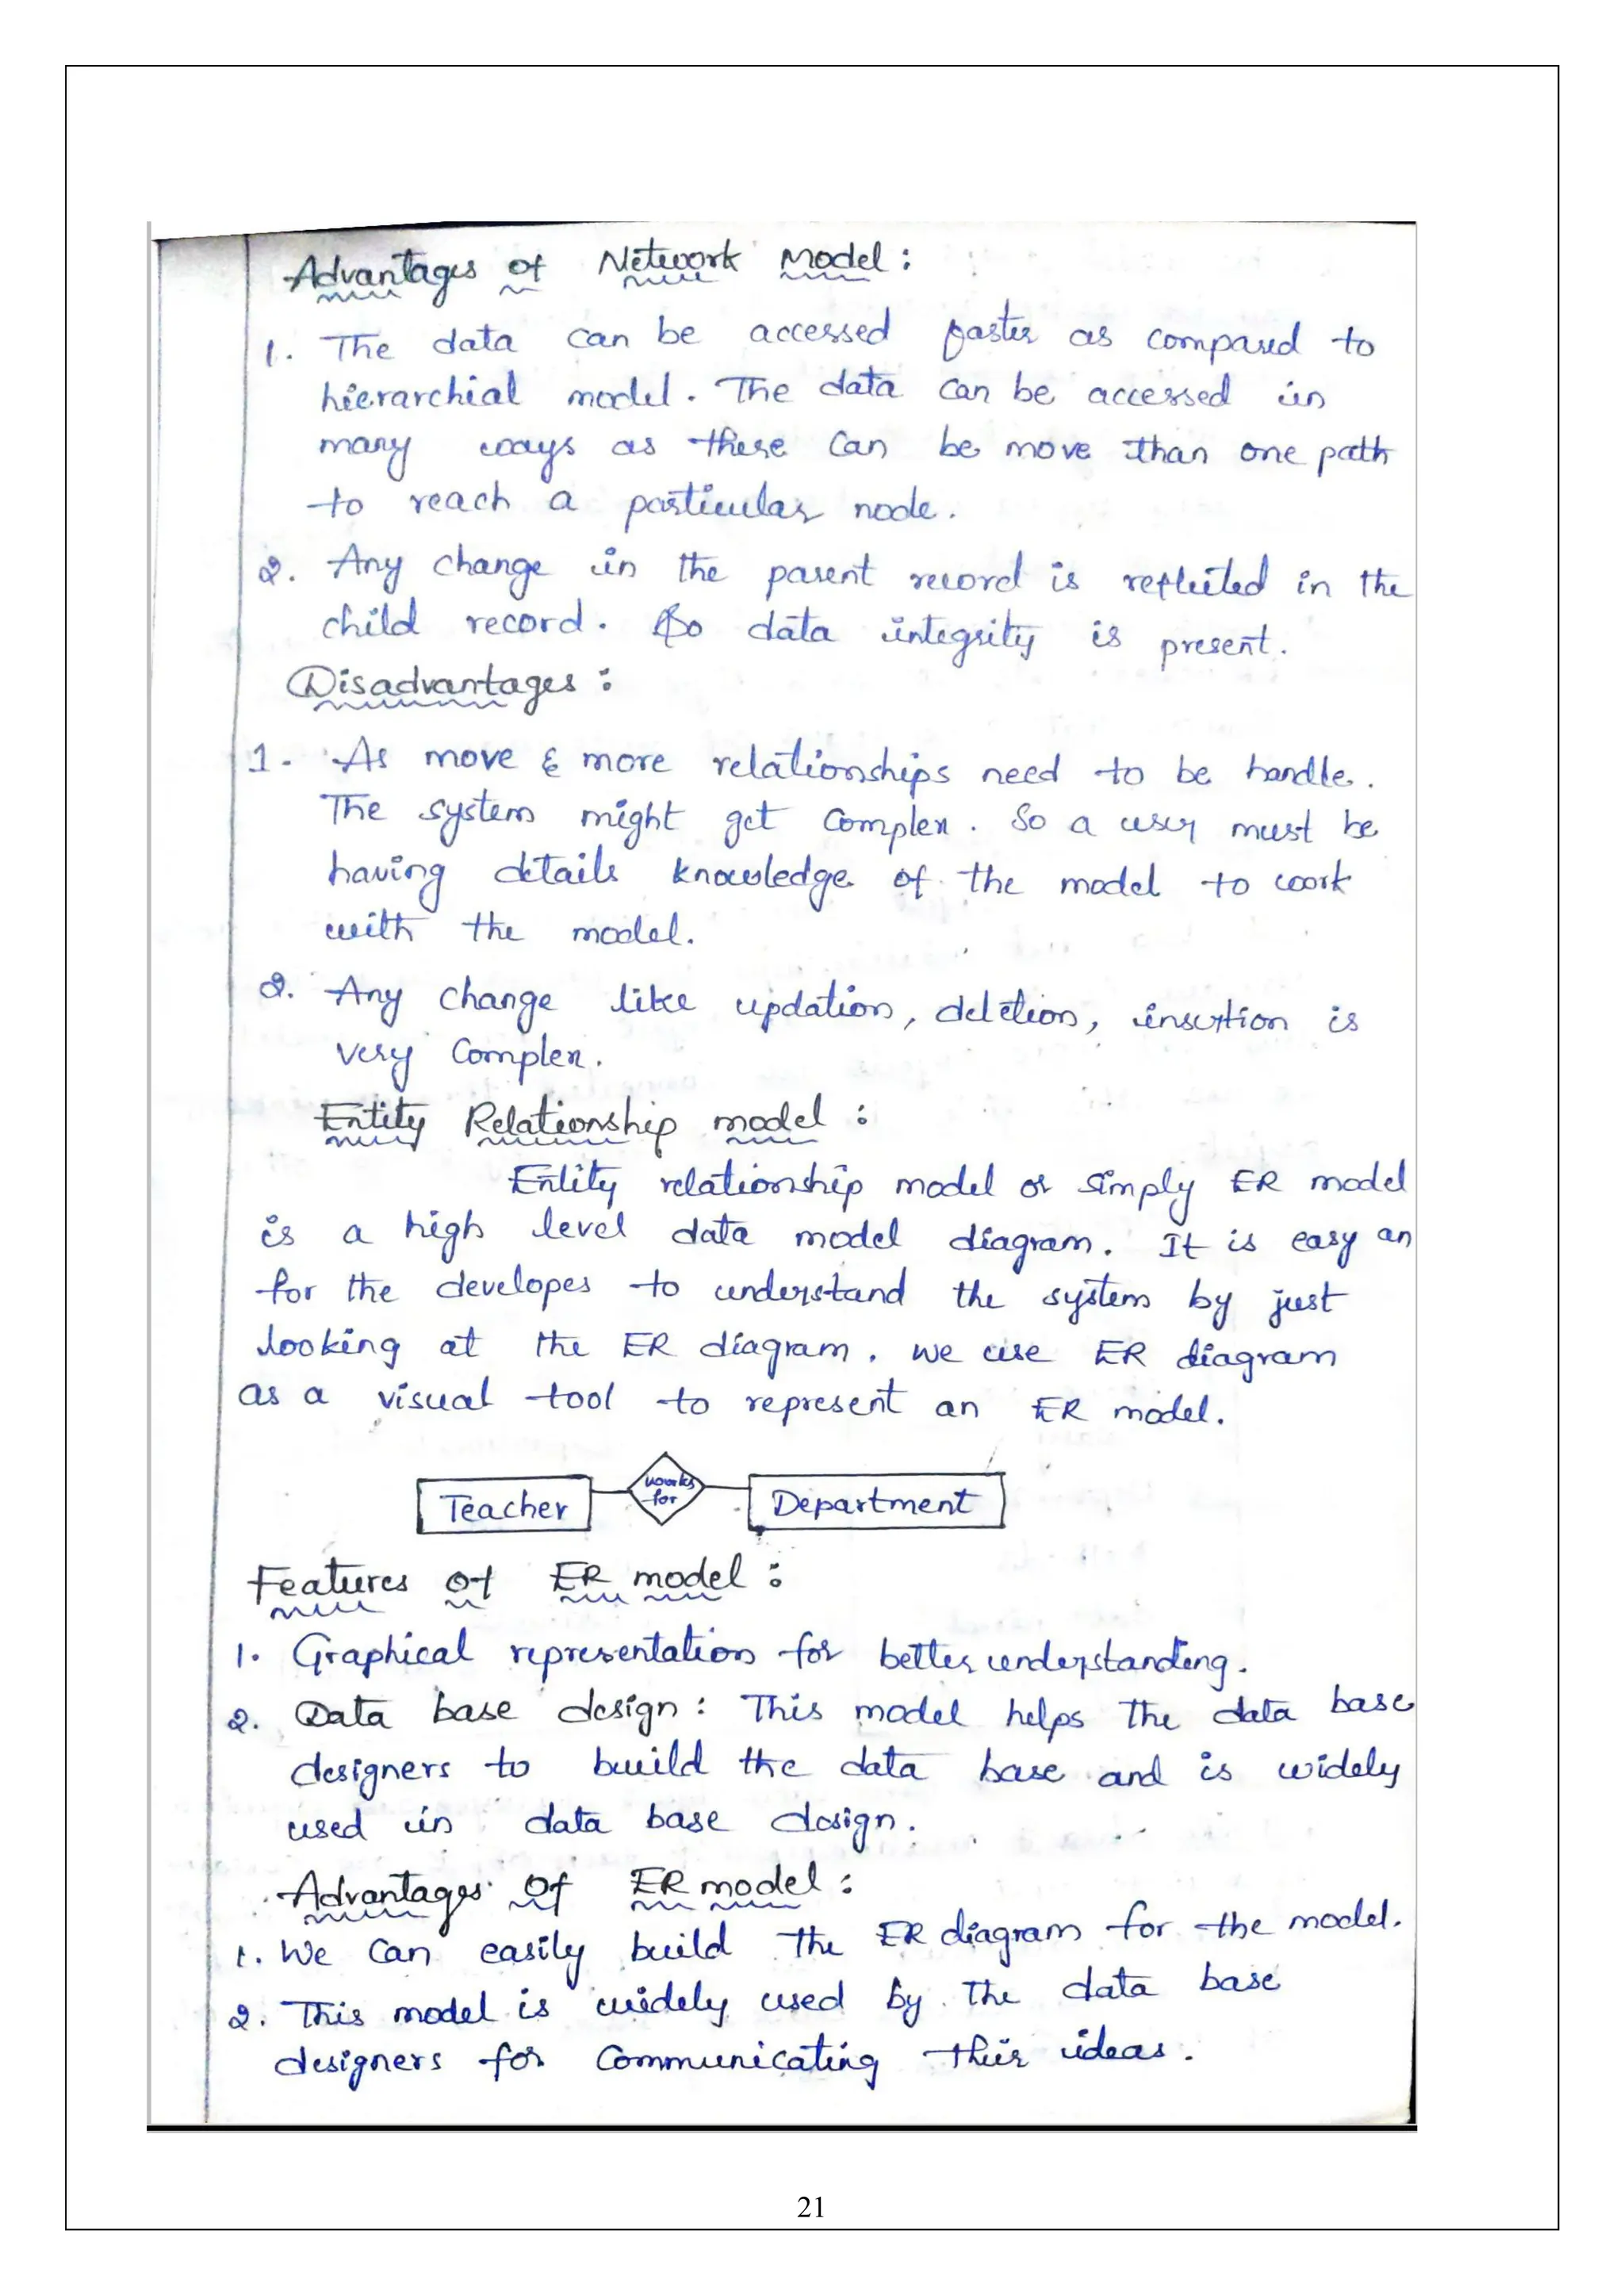 Advantages of Network Model :
1. The data can be accessed faster as compared to
hierarchial model. The data can be accessed in
many ways as there can be move than one path
to reach a particular node.
2. Any change in the parent record is reflected in the
child record. So data integrity is present.
Disadvantages :
1. As move & more relationships need to be handle.
The system might get complex. So a user must be
having details knowledge of the model to work
with the model.
2. Any change like updation, deletion, insertion is
very complex.
Entity Relationship model :
Entity relationship model or simply ER model
is a high level data model diagram. It is easy an
for the developes to understand the system by just
looking at the ER diagram. we use ER diagram
as a visual tool to represent an ER model.
Teacher works for Department
Features of ER model :
1. Graphical representation for better understanding.
2. Data base design : This model helps the data base
designers to build the data base and is widely
used in data base design.
Advantages of ER model :
1. We can easily build the ER diagram for the model.
2. This model is widely used by the data base
designers for communicating their ideas.
21